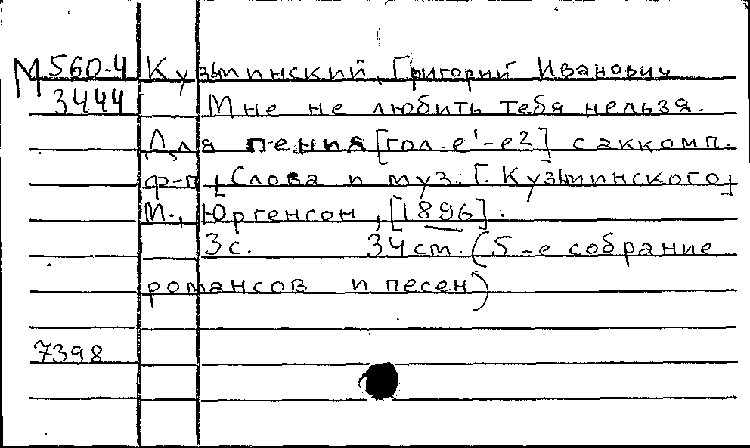 М 560-4 Кузьминский, Григорий Иванович
3444 Мне не любить тебя нельзя.
Для пения [гол. e¹-e2] с аккомп.
ф-п. [Слова и муз. Г. Кузьминского]
М., Юргенсон, [1896].
3с. 34см. (5-е собрание
романсов и песен)
7398